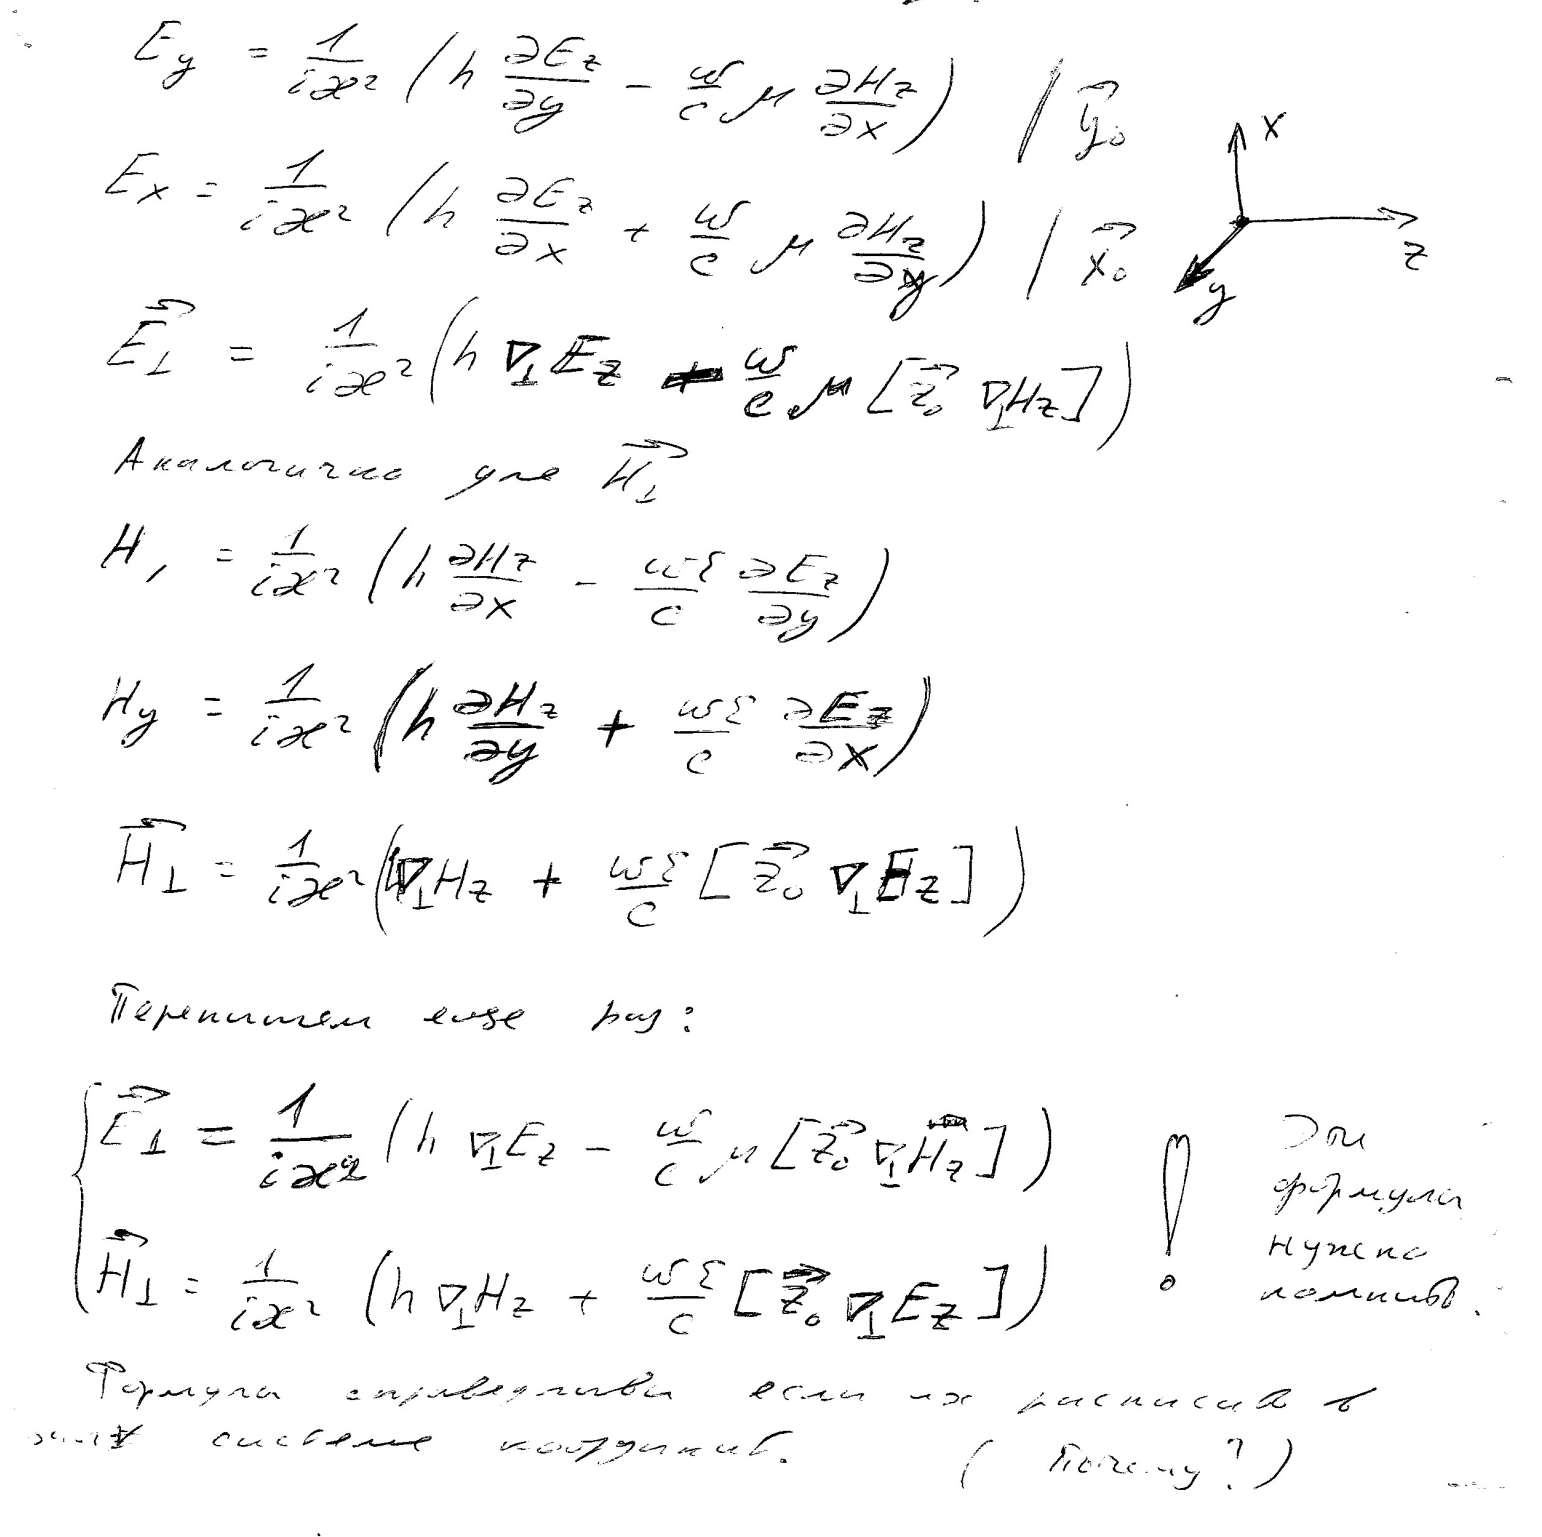 E_y = 1/(iæ²) (h ∂E_z/∂y − ω/c μ ∂H_z/∂x) | y⃗₀
x
E_x = 1/(iæ²) (h ∂E_z/∂x + ω/c μ ∂H_z/∂y) | x⃗₀
z
y
E⃗⊥ = 1/(iæ²) (h ∇⊥E_z − ω/c μ [z⃗₀ ∇⊥H_z])
Аналогично для H⃗⊥
H = 1/(iæ²) (h ∂H_z/∂x − ωε/c ∂E_z/∂y)
H_y = 1/(iæ²) (h ∂H_z/∂y + ωε/c ∂E_z/∂x)
H⃗⊥ = 1/(iæ²) (h∇⊥H_z + ωε/c [z⃗₀ ∇⊥E_z])
Перепишем еще раз:
E⃗⊥ = 1/(iæ²) (h ∇⊥E_z − ω/c μ [z⃗₀ ∇⊥H_z])
H⃗⊥ = 1/(iæ²) (h ∇⊥H_z + ωε/c [z⃗₀ ∇⊥E_z])
!
Эти
формулы
нужно
помнить.
Формулы справедливы если их расписать в
системе координат. (Почему?)